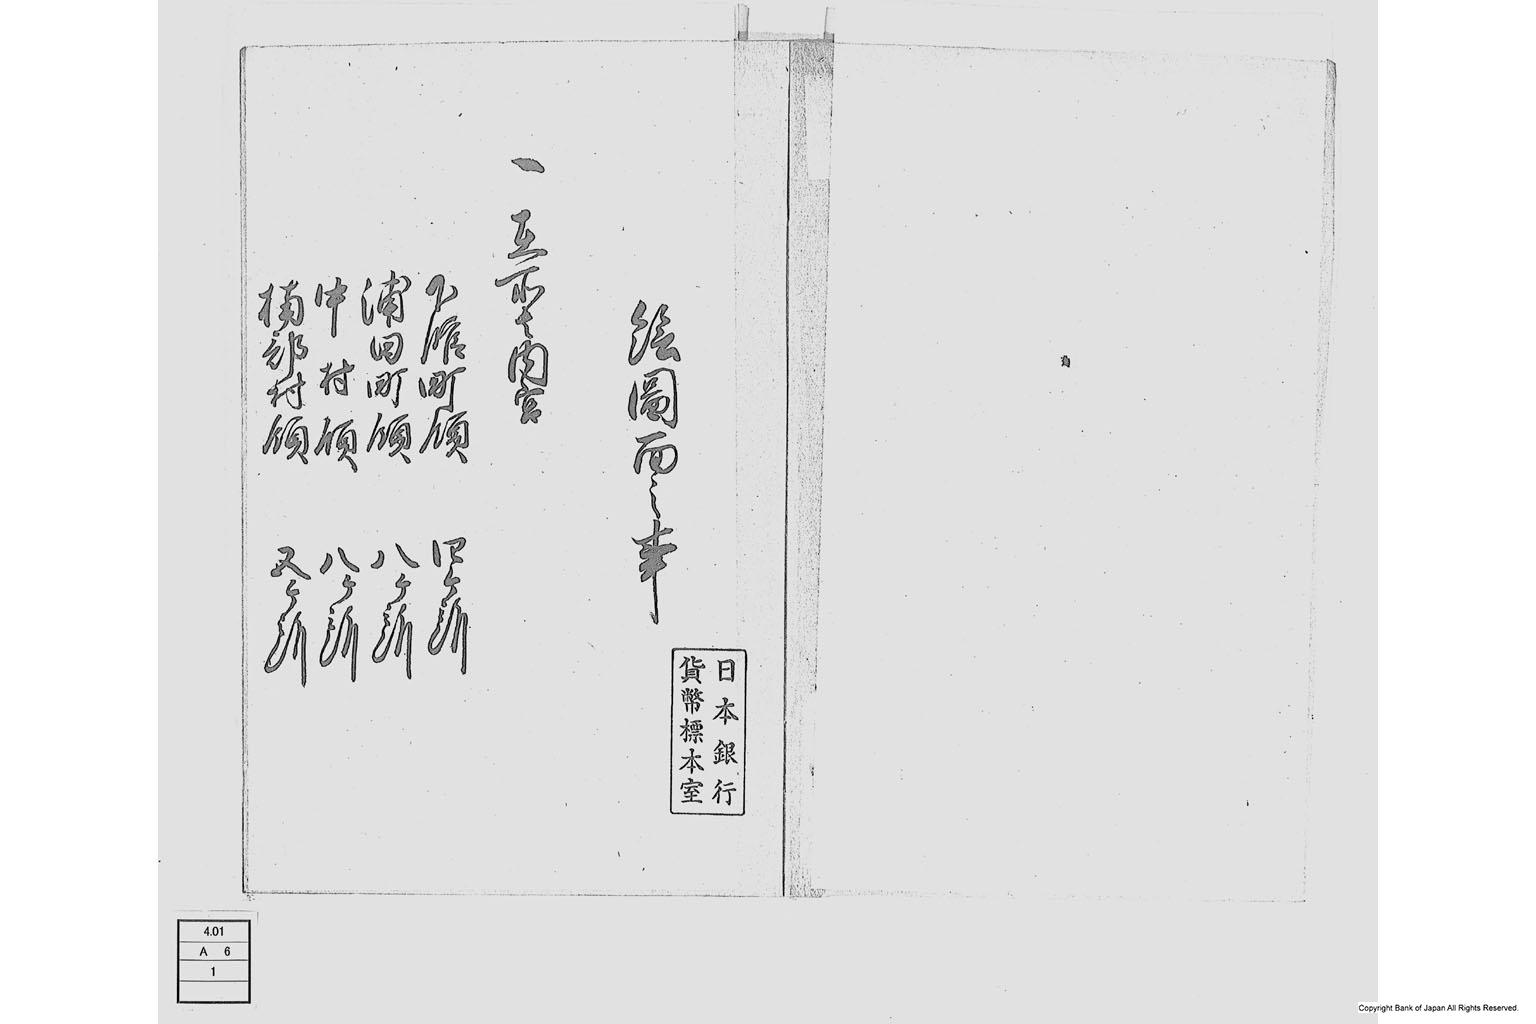 絵圖面之事
一 在所者内宮
下舘町領 四ヶ所
浦田町領 八ヶ所
中村領 八ヶ所
楠部村領 五ヶ所
日本銀行
貨幣標本室
4.01
A 6
1
Copyright Bank of Japan All Rights Reserved.